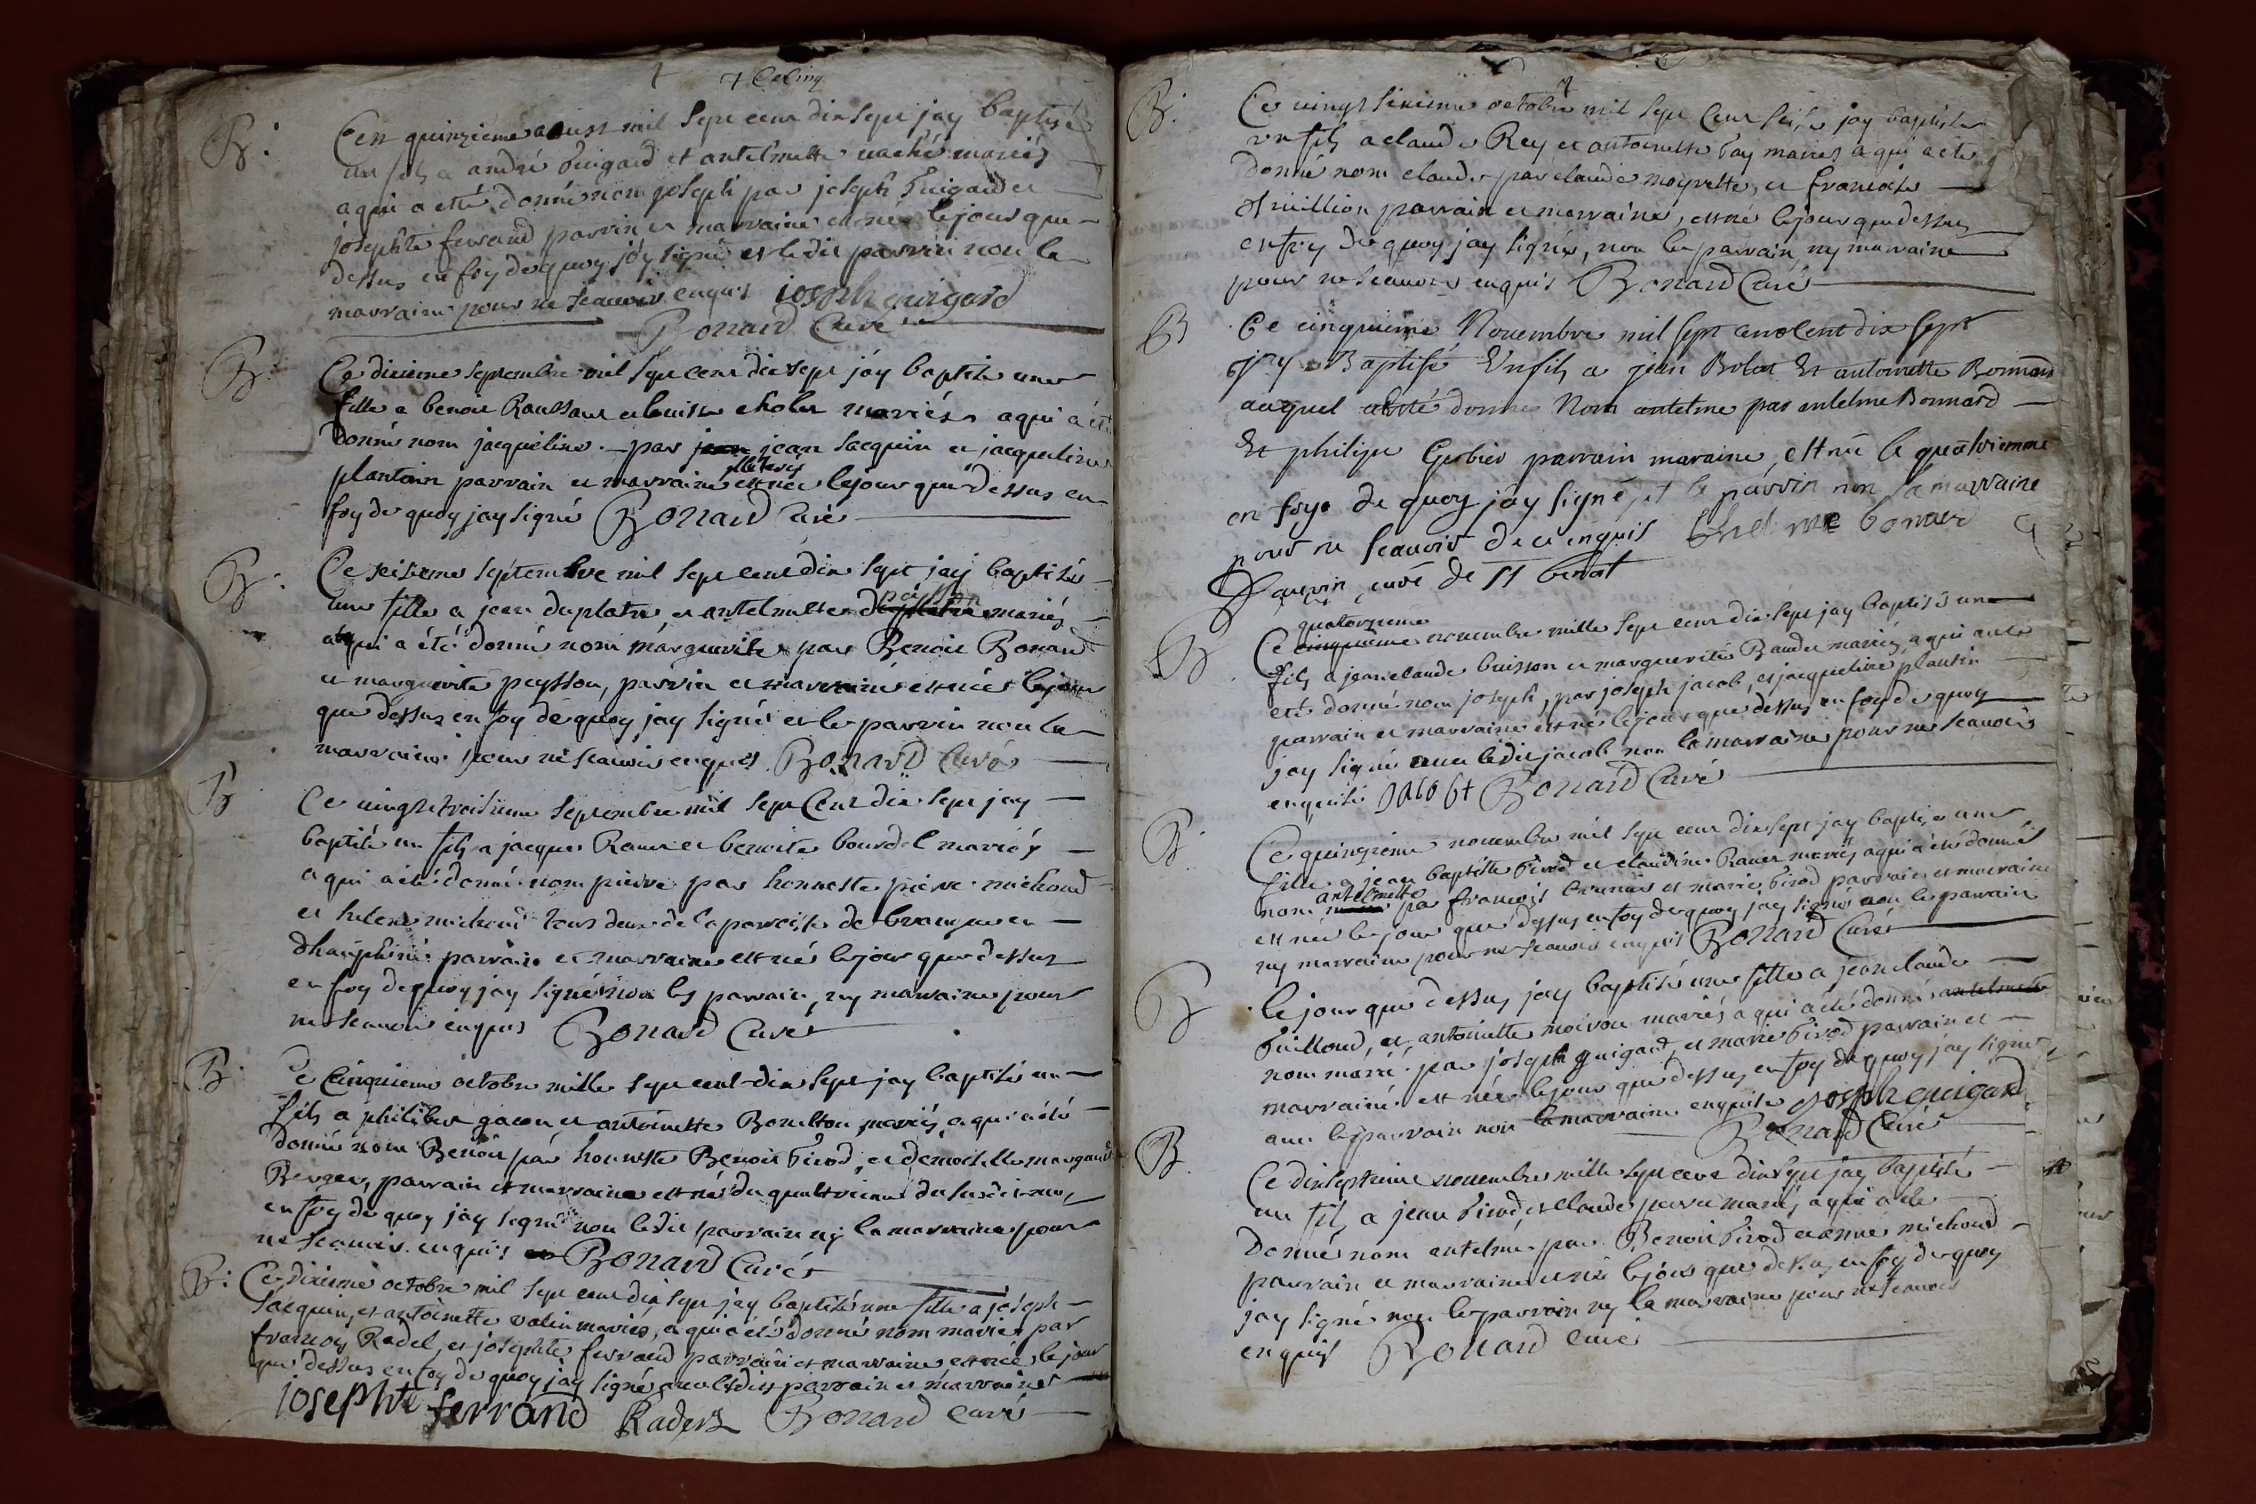 B: Cen quinzieme aoust mil sept cent dix sept jay baptisé
un fils a andré Guigard et antelmette vaché mariés
a qui a etté donné nom joseph par joseph Guigard et
josephte ferrand parvin et marraine est né le jour que
dessus en foy de quoy jóy signé et le dit parvin non la
marraine pour ne scauoir enquis ioseph guigard
Bonard Curé
B: Ce dixieme septembre mil sept cent dix sept jáy baptisé une
fille a benoit Roussaut et louise chober mariés a qui a été
donné nom jacqueline par jean jean sacquin et jacqueline
plantin parrain et marraine illiteres est née le jour que dessus en
foy de quoy jay signé Bonard Curé
B: Ce seizieme séptembre mil sept cent dix sept jay baptisé
une fille a jean duplatre et antelmette duplatre mariés
a qui a été donné nom marguerite par Benoit Bonard
et marguerite peysson, parvin et marraine est née le jour
que dessus en foy de quoy jay signé et le parvin non la
marraine pour ne scauoir enquis Bonard Curé
B Ce vingt troisieme septembre mil sept Cent dix sept jay
baptisé un fils a jacques Ravier et benoite bourdel mariés
a qui a été donné nom pierre par honneste pierre michoud
et helene michoud tous deux de la paroisse de brangue en
dhauphiné parrain et marraine est né le jour que dessus
en foy de quoy jay signé non les parrain, ny marraine pour
ne scauoir enquis Bonard Curé
B: Ce Cinquieme octobre mille sept cent dix sept jay baptisé un
fils a philibert gacon et antoinette Bonelton mariés, a qui a été
donné nom Benoit par honneste Benoit Girod, et demoiselle margaud
Berger, parrain et marraine est né du quattrieme du susdit mois
en foy de quoy jay signé non le dit parrain ny la marraine pour
ne scauoir enquis Bonard Curé
B: Ce dixieme octobre mil sept cent dix sept jay baptisé une fille a joseph
sacquin, et antoinette valin mariés, a qui a été donné nom marie par
francois Radel, et josephte ferrand parrain et marraine est née le jour
que dessus en foy de quoy jay signé auec lesdits parrain et marraine
iosephte ferrand Bonard curé
B: Ce vingt sixieme octobre mil sept Cent seise jay baptisé
un fils a claude Rey et antoinette bay mariés a qui a eté
donné nom claude par claude moyrette, et francoise
parrain et marraine, est né le jour que dessus
en foy de quoy jay signé, non le parrain ny marraine
pour ne scauoir enquis Bonard Curé
B Ce cinquieme Nouembre mil sept cent dix sept
jay Baptisé Un fils a jean Bolot Et antoinette Bonnard
auquel a esté donné Nom antelme par antelme Bonnard
Et philipe Gerbier parrain maraine, est né le quatriemme
en foye de quoy jay signé et le parvin non la marraine
pour ne scauoir de ce enquis bonard
curé de St benoit
B Ce cinquieme quatorzieme nouembre mille sept cent dix sept jay baptisé un
fils a jean claude buisson et marguerite Baudet mariés, a qui a
eté donné nom joseph, par joseph jacob, et jacqueline plantin
parrain et marraine est né le jour que dessus en foy de quoy
jay signé auec le dit jacob non la marraine pour ne scauoir
enquise Bonard Curé
B: Ce quinzieme nouembre mil sept cent dix sept jay baptisé une
fille a jean baptiste Girod et claudine Ravier mariés a qui a été donné
nom antelmette par francois et marie Girod parrain et marraine
est née le jour que dessus en foy de quoy jay signé non le parrain
ny marraine pour ne scauoir enquis Bonard Curé
B le jour que dessus jay baptisé une fille a jean claude
Guilloud, et, antoinette moiron mariés a qui a été donné antelmette
nom marie par joseph guigard, et marie Girod parrain et
marraine est née le jour que dessus en foy de quoy jay signé
auec le parrain non la marraine enquise joseph guigard
Bonard Curé
B Ce dixseptieme nouembre mille sept cent dix sept jay baptisé
un fils a jean Girod, et claude mariés, a qui a été
donné nom antelme, par Benoit Girod et anne michoud
parrain et marraine est né le jour que dessus en foy de quoy
jay signé non le parrain ny la marraine pour ne scauoir
enquis Bonard curé